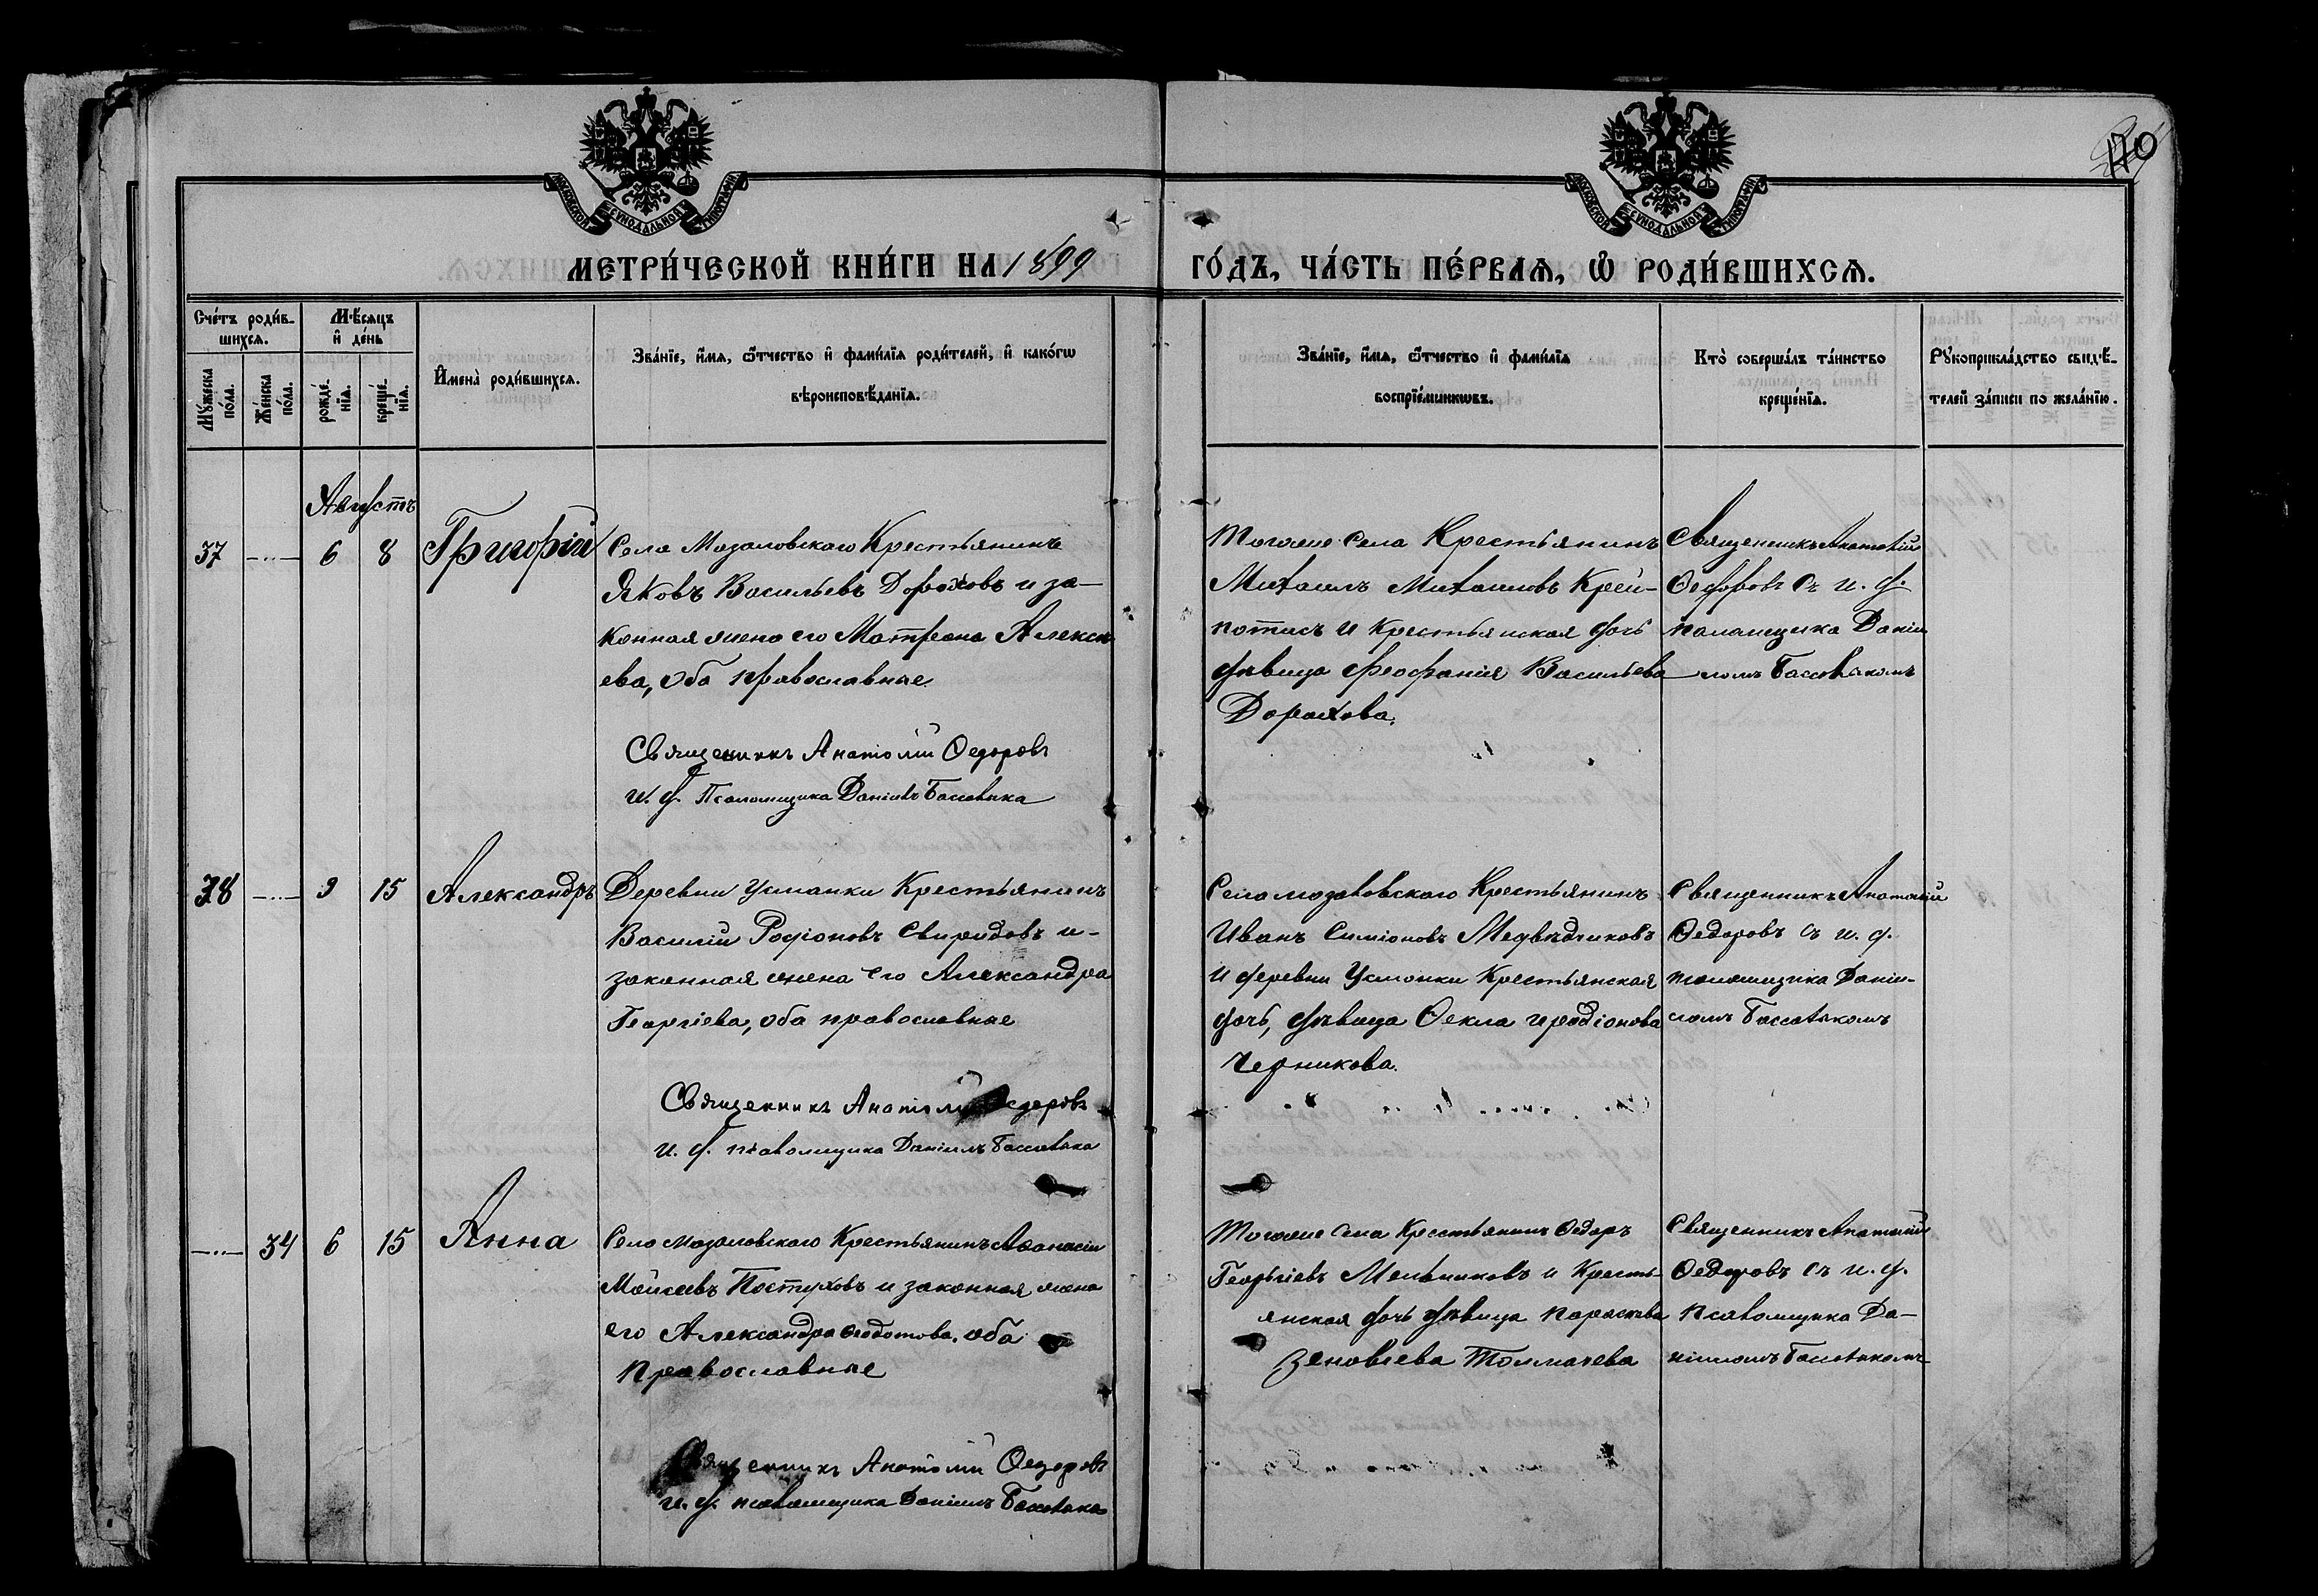 170
МОСКОВСКОЙ СѴНОДАЛЬНОЙ ТИПОГРАФІИ
МОСКОВСКОЙ СѴНОДАЛЬНОЙ ТИПОГРАФІИ
МЕТРИ́ЧЕСКОЙ КНИ́ГИ НА 1899 ГО́ДЪ, ЧА́СТЬ ПЕ́РВАѦ, Ѡ҆ РОДИ́ВШИХСѦ.
Сче́тъ роди́в-
шихсѧ.
Мꙋ́жеска по́ла.
Же́нска по́ла.
Мѣ́сѧцъ
и҆ де́нь
рожде́-
нїѧ.
креще́-
нїѧ.
И҆мена̀ роди́вшихсѧ.
Зва́нїе, и҆́мѧ, ѻ҆́тчество и҆ фами́лїѧ роди́телей, и҆ како́гѡ
вѣроисповѣ́данїѧ.
Зва́нїе, и҆́мѧ, ѻ҆́тчество и҆ фами́лїѧ
воспрїе́мникѡвъ.
Кто̀ соверша́лъ та́инство
креще́нїѧ.
Рꙋкоприкла́дство свидѣ́-
телей за́писи по жела́нїю.
Августъ
37 —..— 6 8 Григорій
Села Мозаловскаго Крестьянинъ
Яковъ Васильевъ Дороховъ и за-
конная жена его Матрона Алексѣ
ева, оба православные.
Священникъ Анатолій Ѳедоровъ
и. д. Псаломщика Даніилъ Бассовяка
Тогоже села Крестьянинъ
Михаилъ Михаиловъ Крей-
потисъ и крестьянская дочь
дѣвица Феофанія Васильева
Дорохова.
Священникъ Анатолій
Ѳедоровъ съ и. д.
псаломщика Даніи
ломъ Бассовякомъ
38 —..— 9 15 Александръ
Деревни Усманки Крестьянинъ
Василій Родіоновъ Свиридовъ и-
законная жена его Александра
Георгіева, оба православные
Священникъ Анатолій Ѳедоровъ
и. д. псаломщика Даніилъ Бассовяка
Села мозаловскаго Крестьянинъ
Иванъ Симіоновъ Медвѣдчиковъ
и деревни Усманки Крестьянская
дочь, дѣвица Ѳекла иродіонова
Черникова.
Священникъ Анатолій
Ѳедоровъ съ и. д.
псаломщика Даніи-
ломъ Бассовякомъ
—..— 34 6 15 Анна
Села мозаловскаго Крестьянинъ Аѳанасій
Моисеевъ Пастуховъ и законная жена
его Александра Ѳеодотова, оба
православные
Священникъ Анатолій Ѳедоровъ
и. д. псаломщика Даніилъ Бассовяка
Тогоже села Крестьянинъ Ѳедоръ
Георгіевъ Мельниковъ и Кресть-
янская дочь дѣвица параскева
Зеновіева Толмачева
Священникъ Анатолій
Ѳедоровъ съ и. д.
Псаломщика Да-
ніиломъ Бассовякомъ